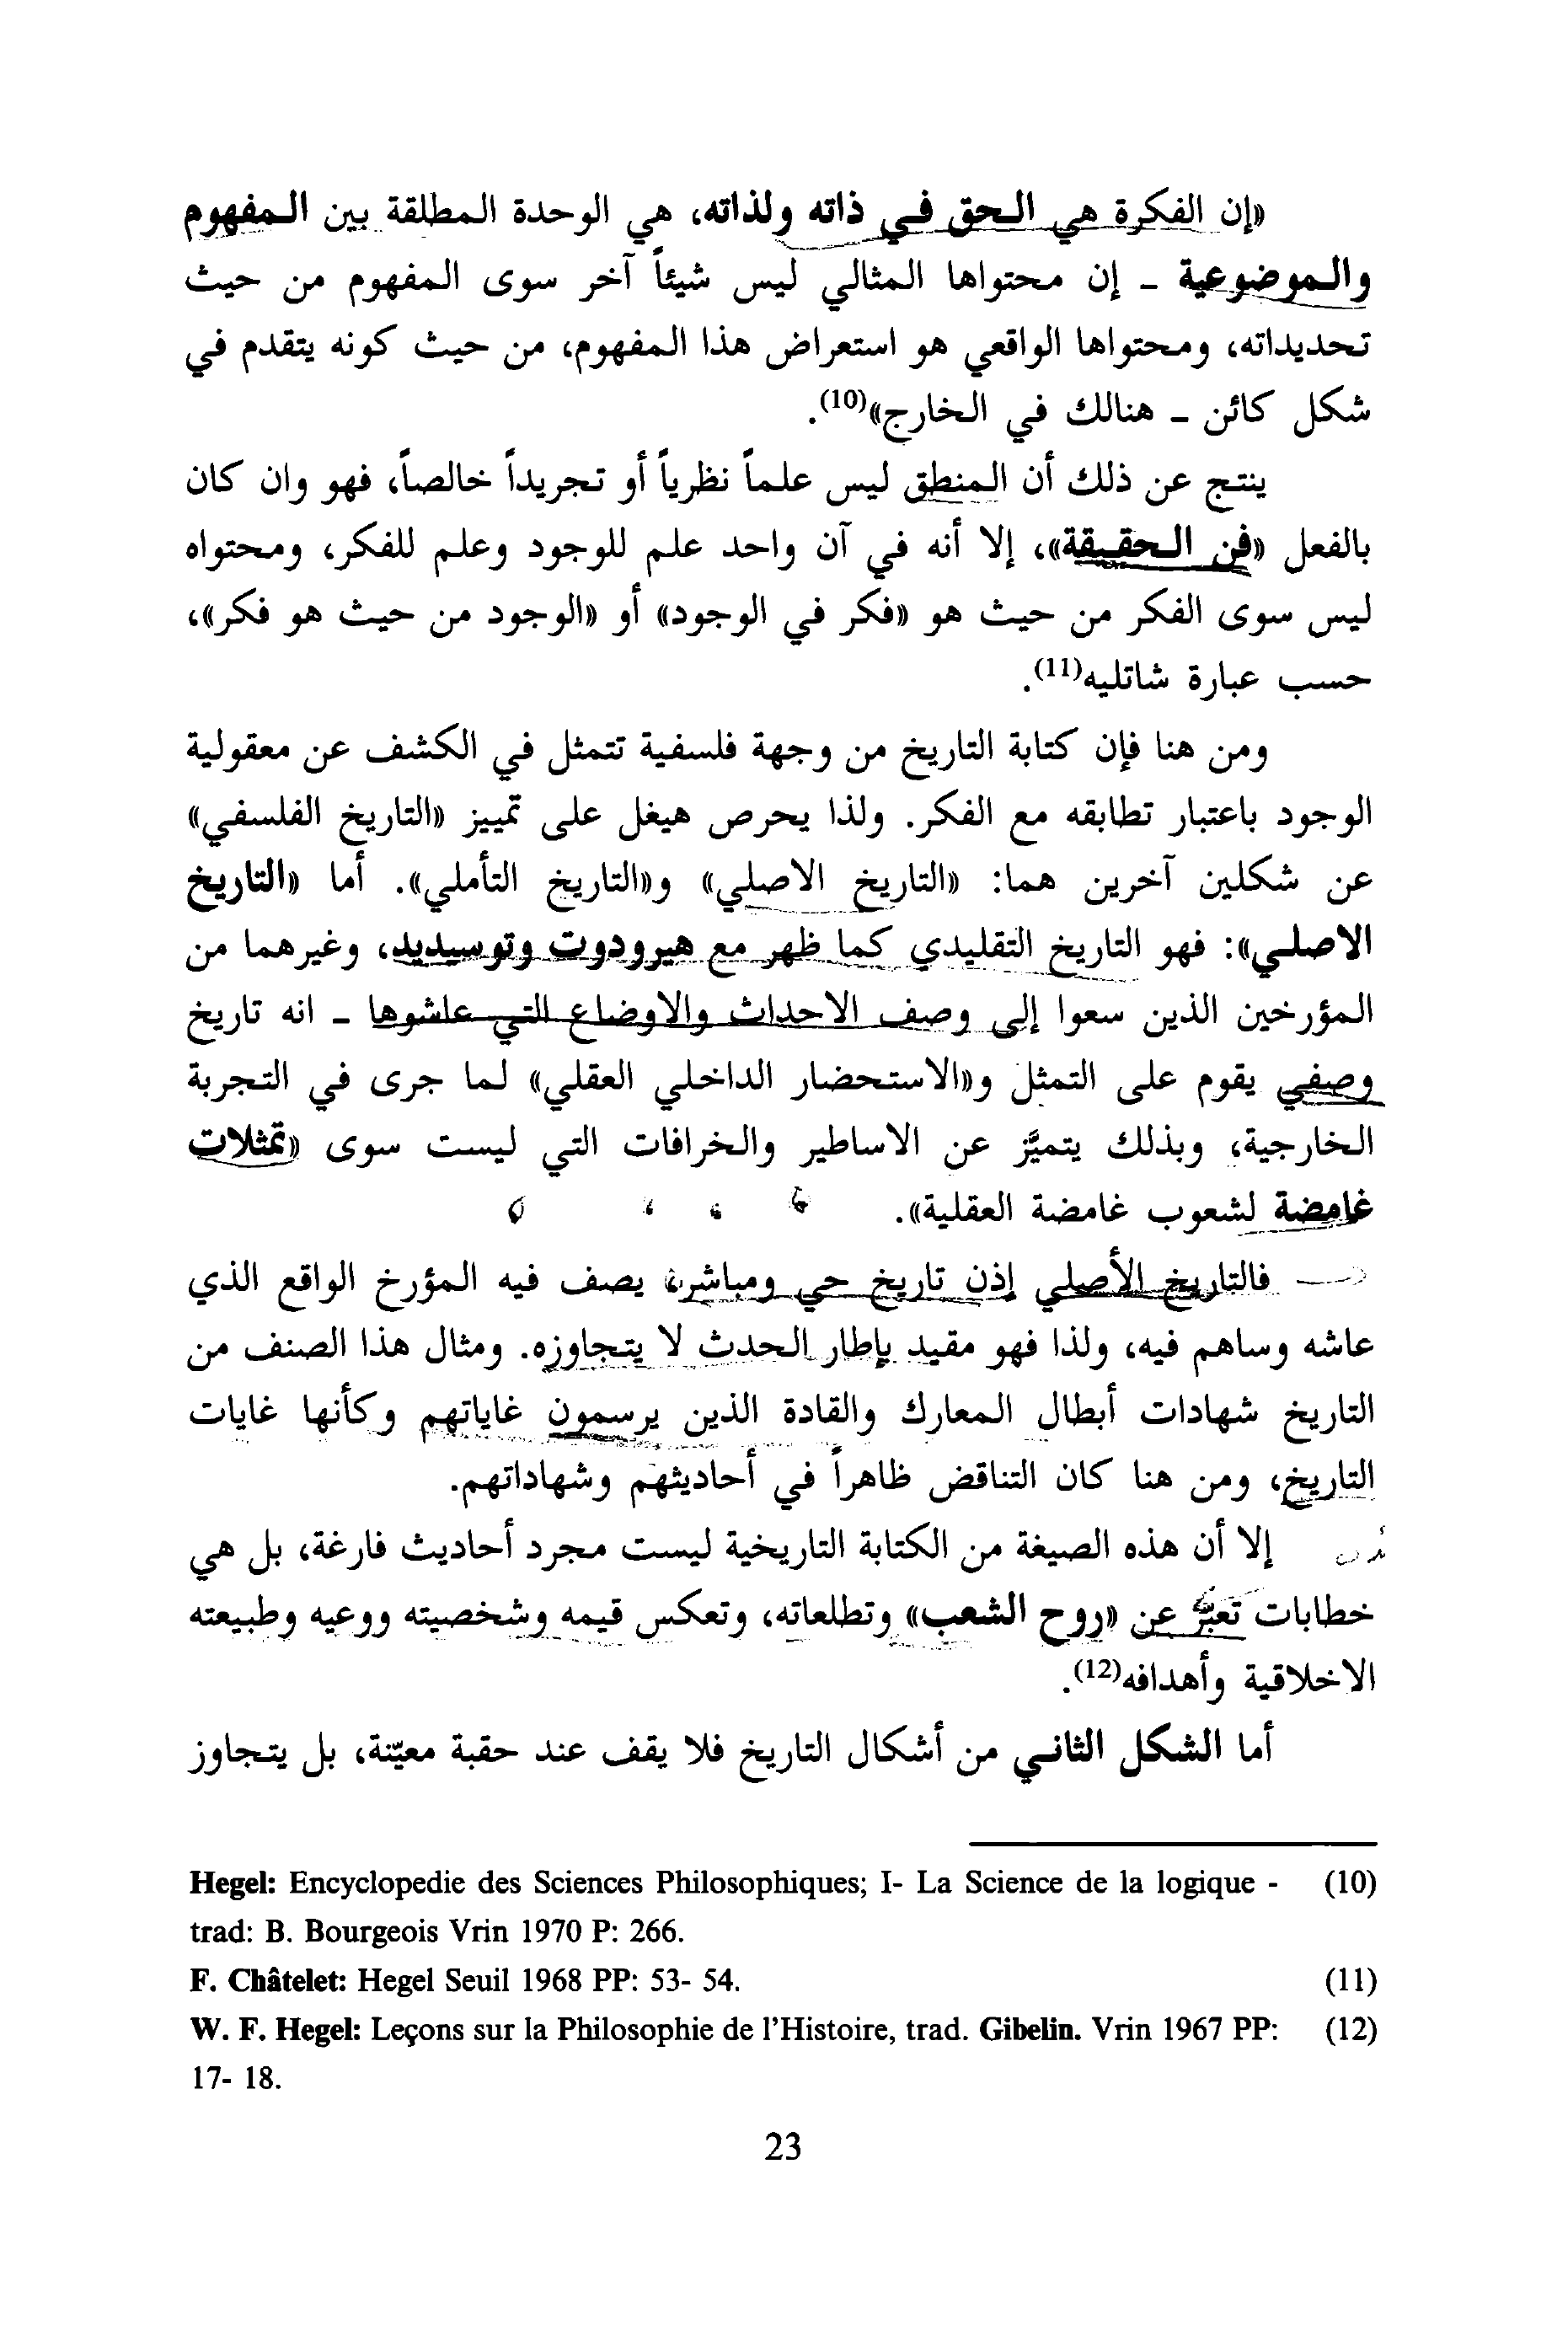 «إن الفكرة هي الحق في ذاته ولذاته، هي الوحدة المطلقة بين المفهوم
والموضوعية - إن محتواها المثالي ليس شيئاً آخر سوى المفهوم من حيث
تحديداته، ومحتواها الواقعي هو استعراض هذا المفهوم، من حيث كونه يتقدم في
شكل كائن - هنالك في الخارج»(10).
ينتج عن ذلك أن المنطق ليس علماً نظرياً أو تجريداً خالصاً، فهو وان كان
بالفعل «فن الحقيقة»، إلا أنه في آن واحد علم للوجود وعلم للفكر، ومحتواه
ليس سوى الفكر من حيث هو «فكر في الوجود» أو «الوجود من حيث هو فكر»،
حسب عبارة شاتليه(11).
ومن هنا فإن كتابة التاريخ من وجهة فلسفية تتمثل في الكشف عن معقولية
الوجود باعتبار تطابقه مع الفكر. ولذا يحرص هيغل على تمييز «التاريخ الفلسفي»
عن شكلين آخرين هما: «التاريخ الاصلي» و«التاريخ التأملي». أما «التاريخ
الاصلي»: فهو التاريخ التقليدي كما ظهر مع هيرودوت وتوسيديد، وغيرهما من
المؤرخين الذين سعوا إلى وصف الاحداث والاوضاع التي عاشوها - انه تاريخ
وصفي يقوم على التمثل و«الاستحضار الداخلي العقلي» لما جرى في التجربة
الخارجية، وبذلك يتميَّز عن الاساطير والخرافات التي ليست سوى «تمثلات
غامضة لشعوب غامضة العقلية».
فالتاريخ الأصلي إذن تاريخ حي ومباشر، يصف فيه المؤرخ الواقع الذي
عاشه وساهم فيه، ولذا فهو مقيد بإطار الحدث لا يتجاوزه. ومثال هذا الصنف من
التاريخ شهادات أبطال المعارك والقادة الذين يرسمون غاياتهم وكأنها غايات
التاريخ، ومن هنا كان التناقض ظاهراً في أحاديثهم وشهاداتهم.
إلا أن هذه الصيغة من الكتابة التاريخية ليست مجرد أحاديث فارغة، بل هي
خطابات تعبّر عن «روح الشعب» وتطلعاته، وتعكس قيمه وشخصيته ووعيه وطبيعته
الاخلاقية وأهدافه(12).
أما الشكل الثاني من أشكال التاريخ فلا يقف عند حقبة معيّنة، بل يتجاوز
Hegel: Encyclopedie des Sciences Philosophiques; I- La Science de la logique - (10)
trad: B. Bourgeois Vrin 1970 P: 266.
F. Châtelet: Hegel Seuil 1968 PP: 53- 54. (11)
W. F. Hegel: Leçons sur la Philosophie de l'Histoire, trad. Gibelin. Vrin 1967 PP: (12)
17- 18.
23